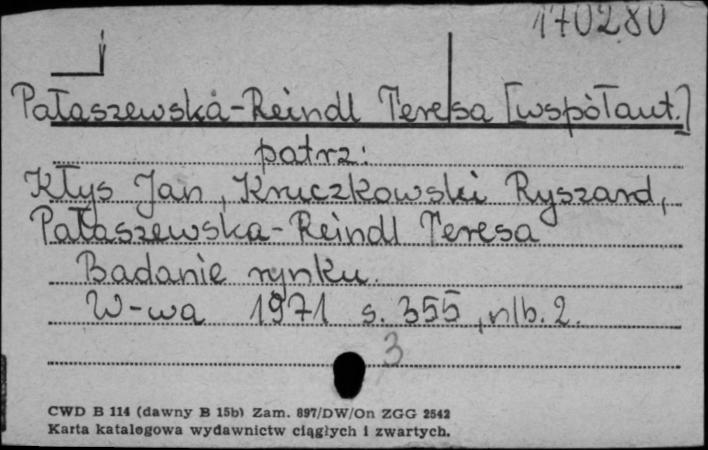 170280
Pałaszewska-Reindl Teresa [współaut.]
patrz:
Kłys Jan, Kruczkowski Ryszard,
Pałaszewska-Reindl Teresa
Badanie rynku.
W-wa 1971 s. 355, nlb. 2.
3
CWD B 114 (dawny B 15b) Zam. 897/DW/On ZGG 2542
Karta katalogowa wydawnictw ciągłych i zwartych.